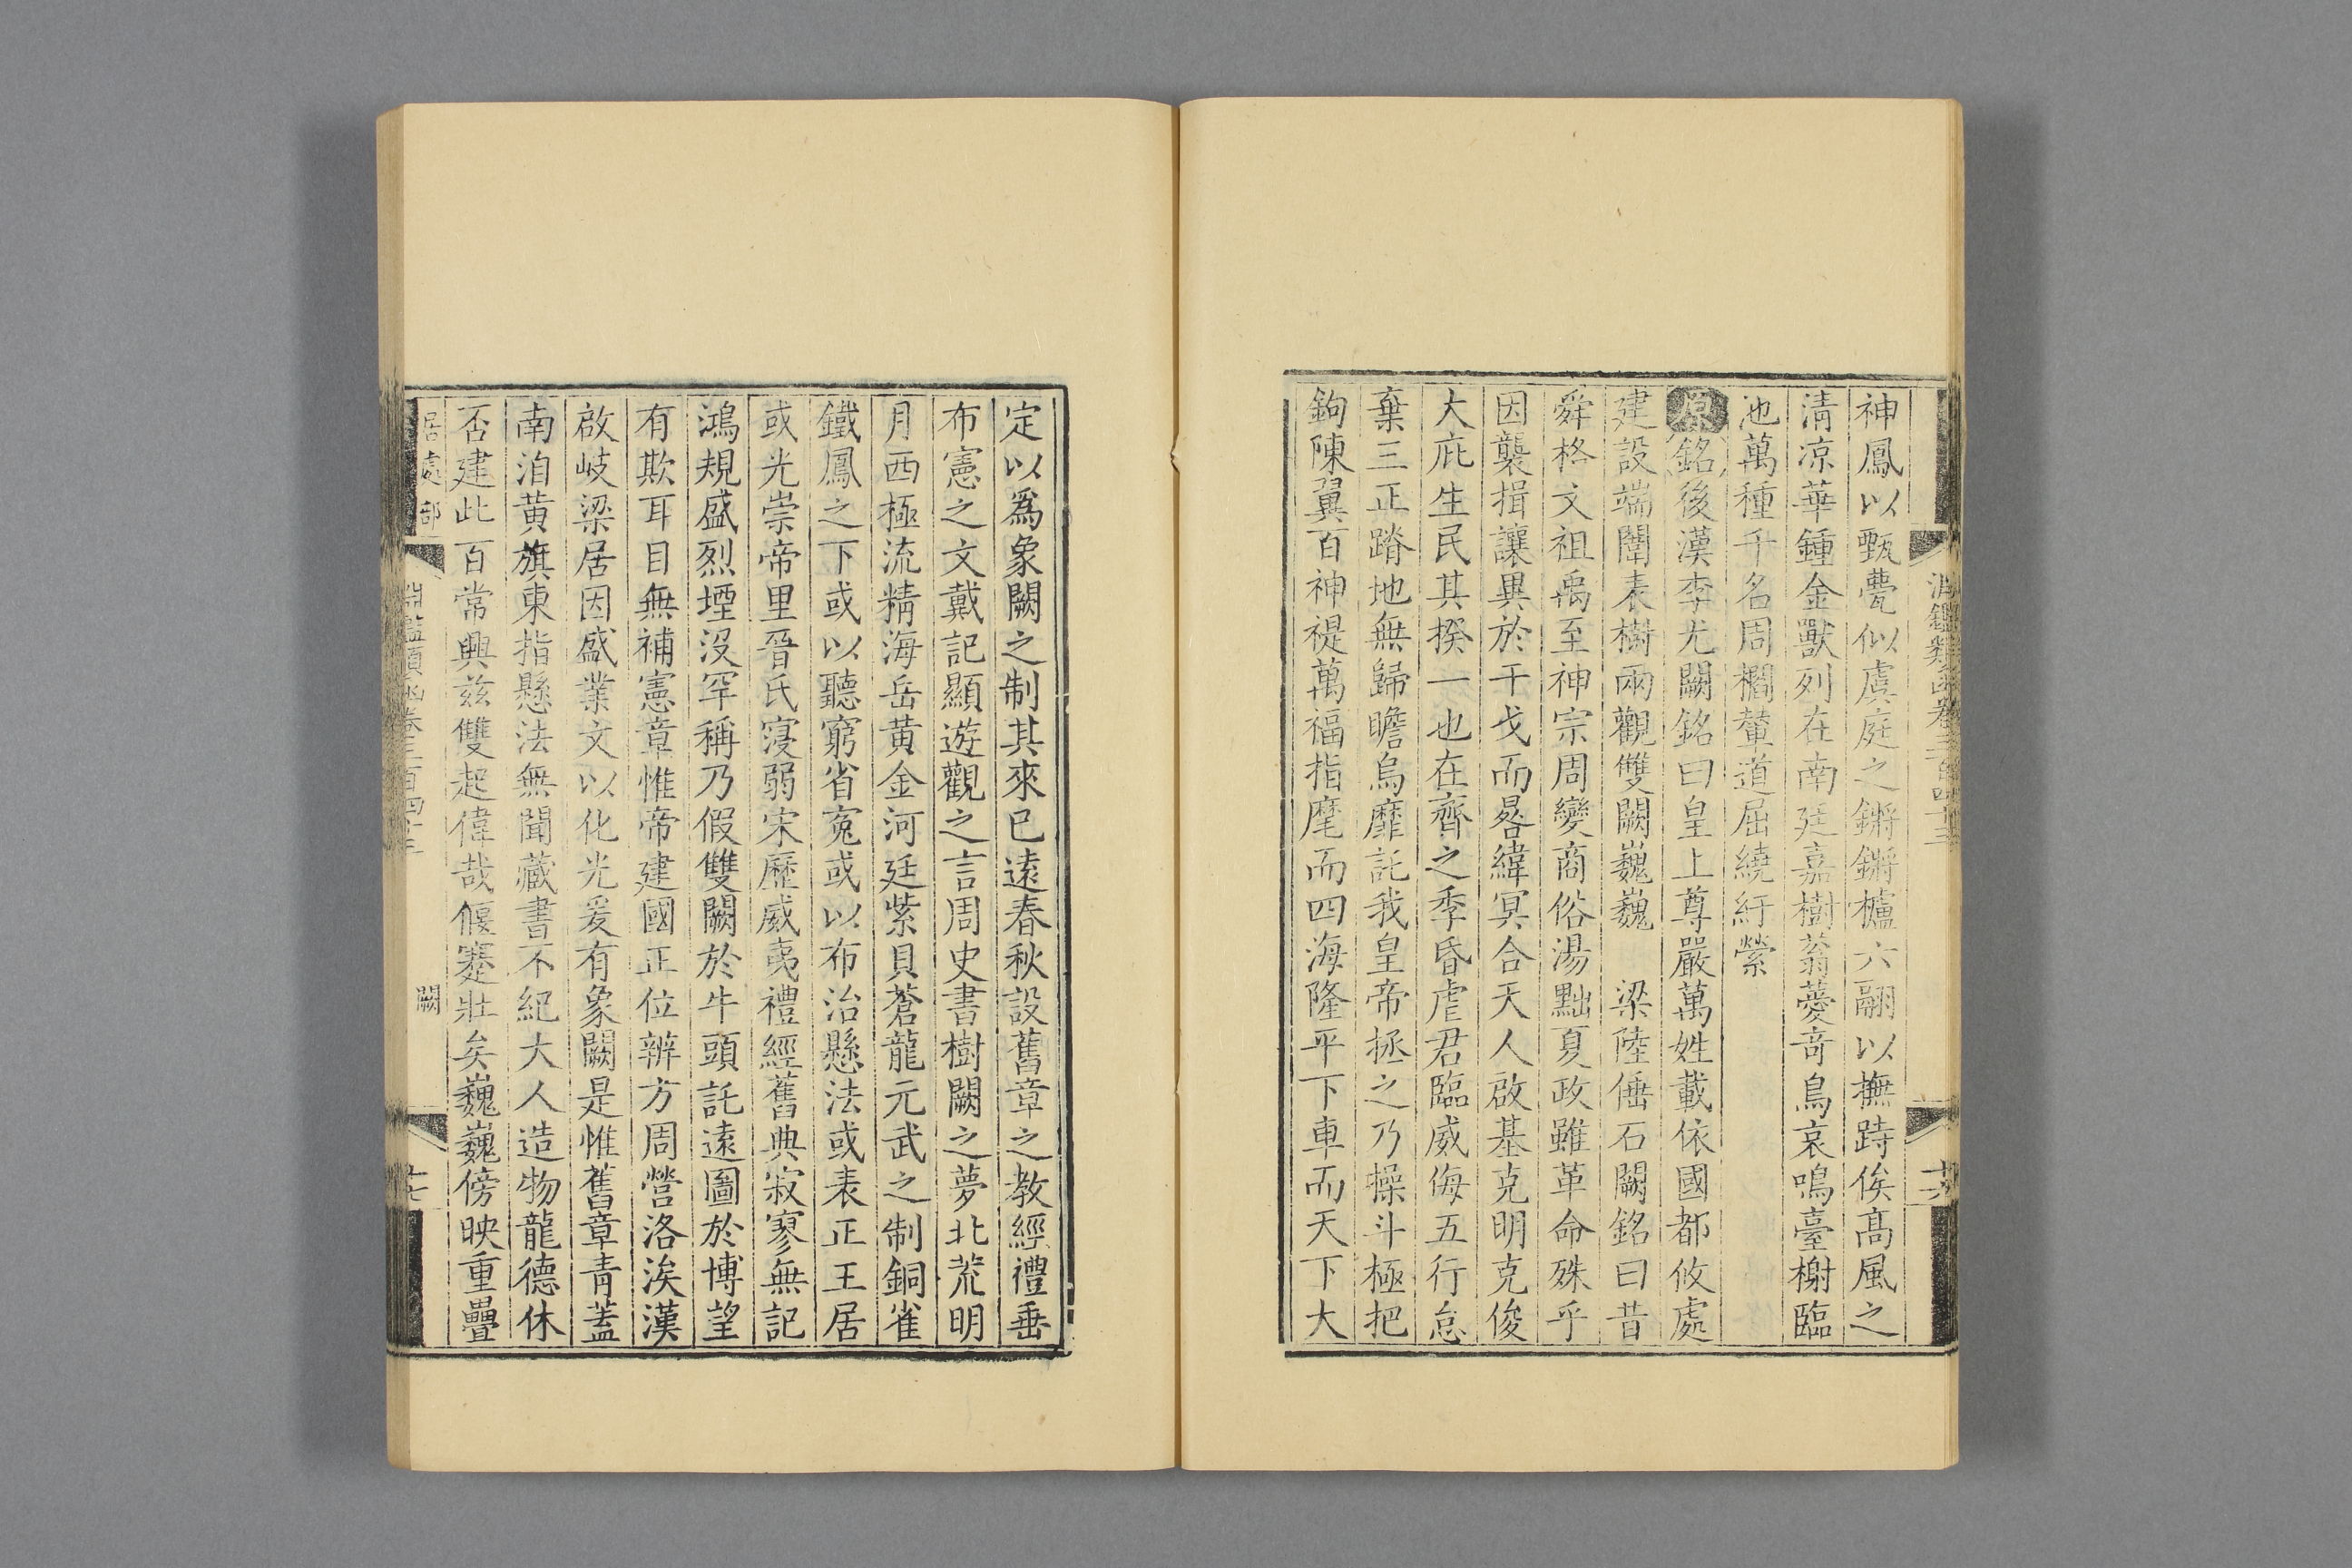 淵鑑類函卷三百四十三
十六
神鳳以甄甍似虞庭之鏘鏘櫨六翮以撫跱俟高風之
清凉華鍾金獸列在南廷嘉樹蓊薆竒鳥哀鳴臺榭臨
池萬種千名周櫩輦道屈繞紆縈
原銘後漢李尤闕銘曰皇上尊嚴萬姓載依國都攸處
建設端闈表樹兩觀雙闕巍巍　梁陸倕石闕銘曰昔
舜格文祖禹至神宗周變商俗湯黜夏政雖革命殊乎
因襲揖讓異於干戈而晷緯冥合天人啟基克明克俊
大庇生民其揆一也在齊之季昏虐君臨威侮五行怠
棄三正蹐地無歸瞻烏靡託我皇帝拯之乃操斗極把
鉤陳翼百神禔萬福指麾而四海隆平下車而天下大
定以爲象闕之制其來已遠春秋設舊章之教經禮垂
布憲之文戴記顯遊觀之言周史書樹闕之夢北荒明
月西極流精海岳黃金河廷紫貝蒼龍元武之制銅雀
鐵鳳之下或以聽窮省寃或以布治懸法或表正王居
或光崇帝里晉氏寖弱宋歷威夷禮經舊典寂寥無記
鴻規盛烈堙没罕稱乃假雙闕於牛頭託遠圖於博望
有欺耳目無補憲章惟帝建國正位辨方周營洛涘漢
啟岐梁居因盛業文以化光爰有象闕是惟舊章青蓋
南洎黃旗東指懸法無聞藏書不紀大人造物龍德休
否建此百常興兹雙起偉哉偃蹇壯矣巍巍傍映重疊
居處部
淵鑑類函卷三百四十三
闕
十七